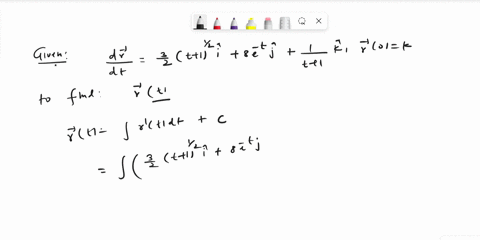 Given: dr⃗/dt = 3/2 (t+1)^1/2 î + 8e^-t ĵ + 1/(t+1) k̂, r⃗(0) = k
to find: r⃗(t)
r⃗(t) = ∫ r'(t) dt + C
= ∫ ( 3/2 (t+1)^1/2 î + 8e^-t j